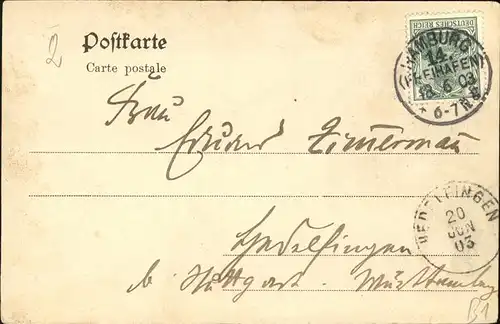 2
Postkarte
Carte postale
DEUTSCHES REICH
HAMBURG
14
(FREIHAFEN)
18 6 03
6-7 N
Frau
Eduard Zimmerman
HEDELFINGEN
20
JUN
03
Hedelfingen
b. Stuttgart. Württemberg
B1